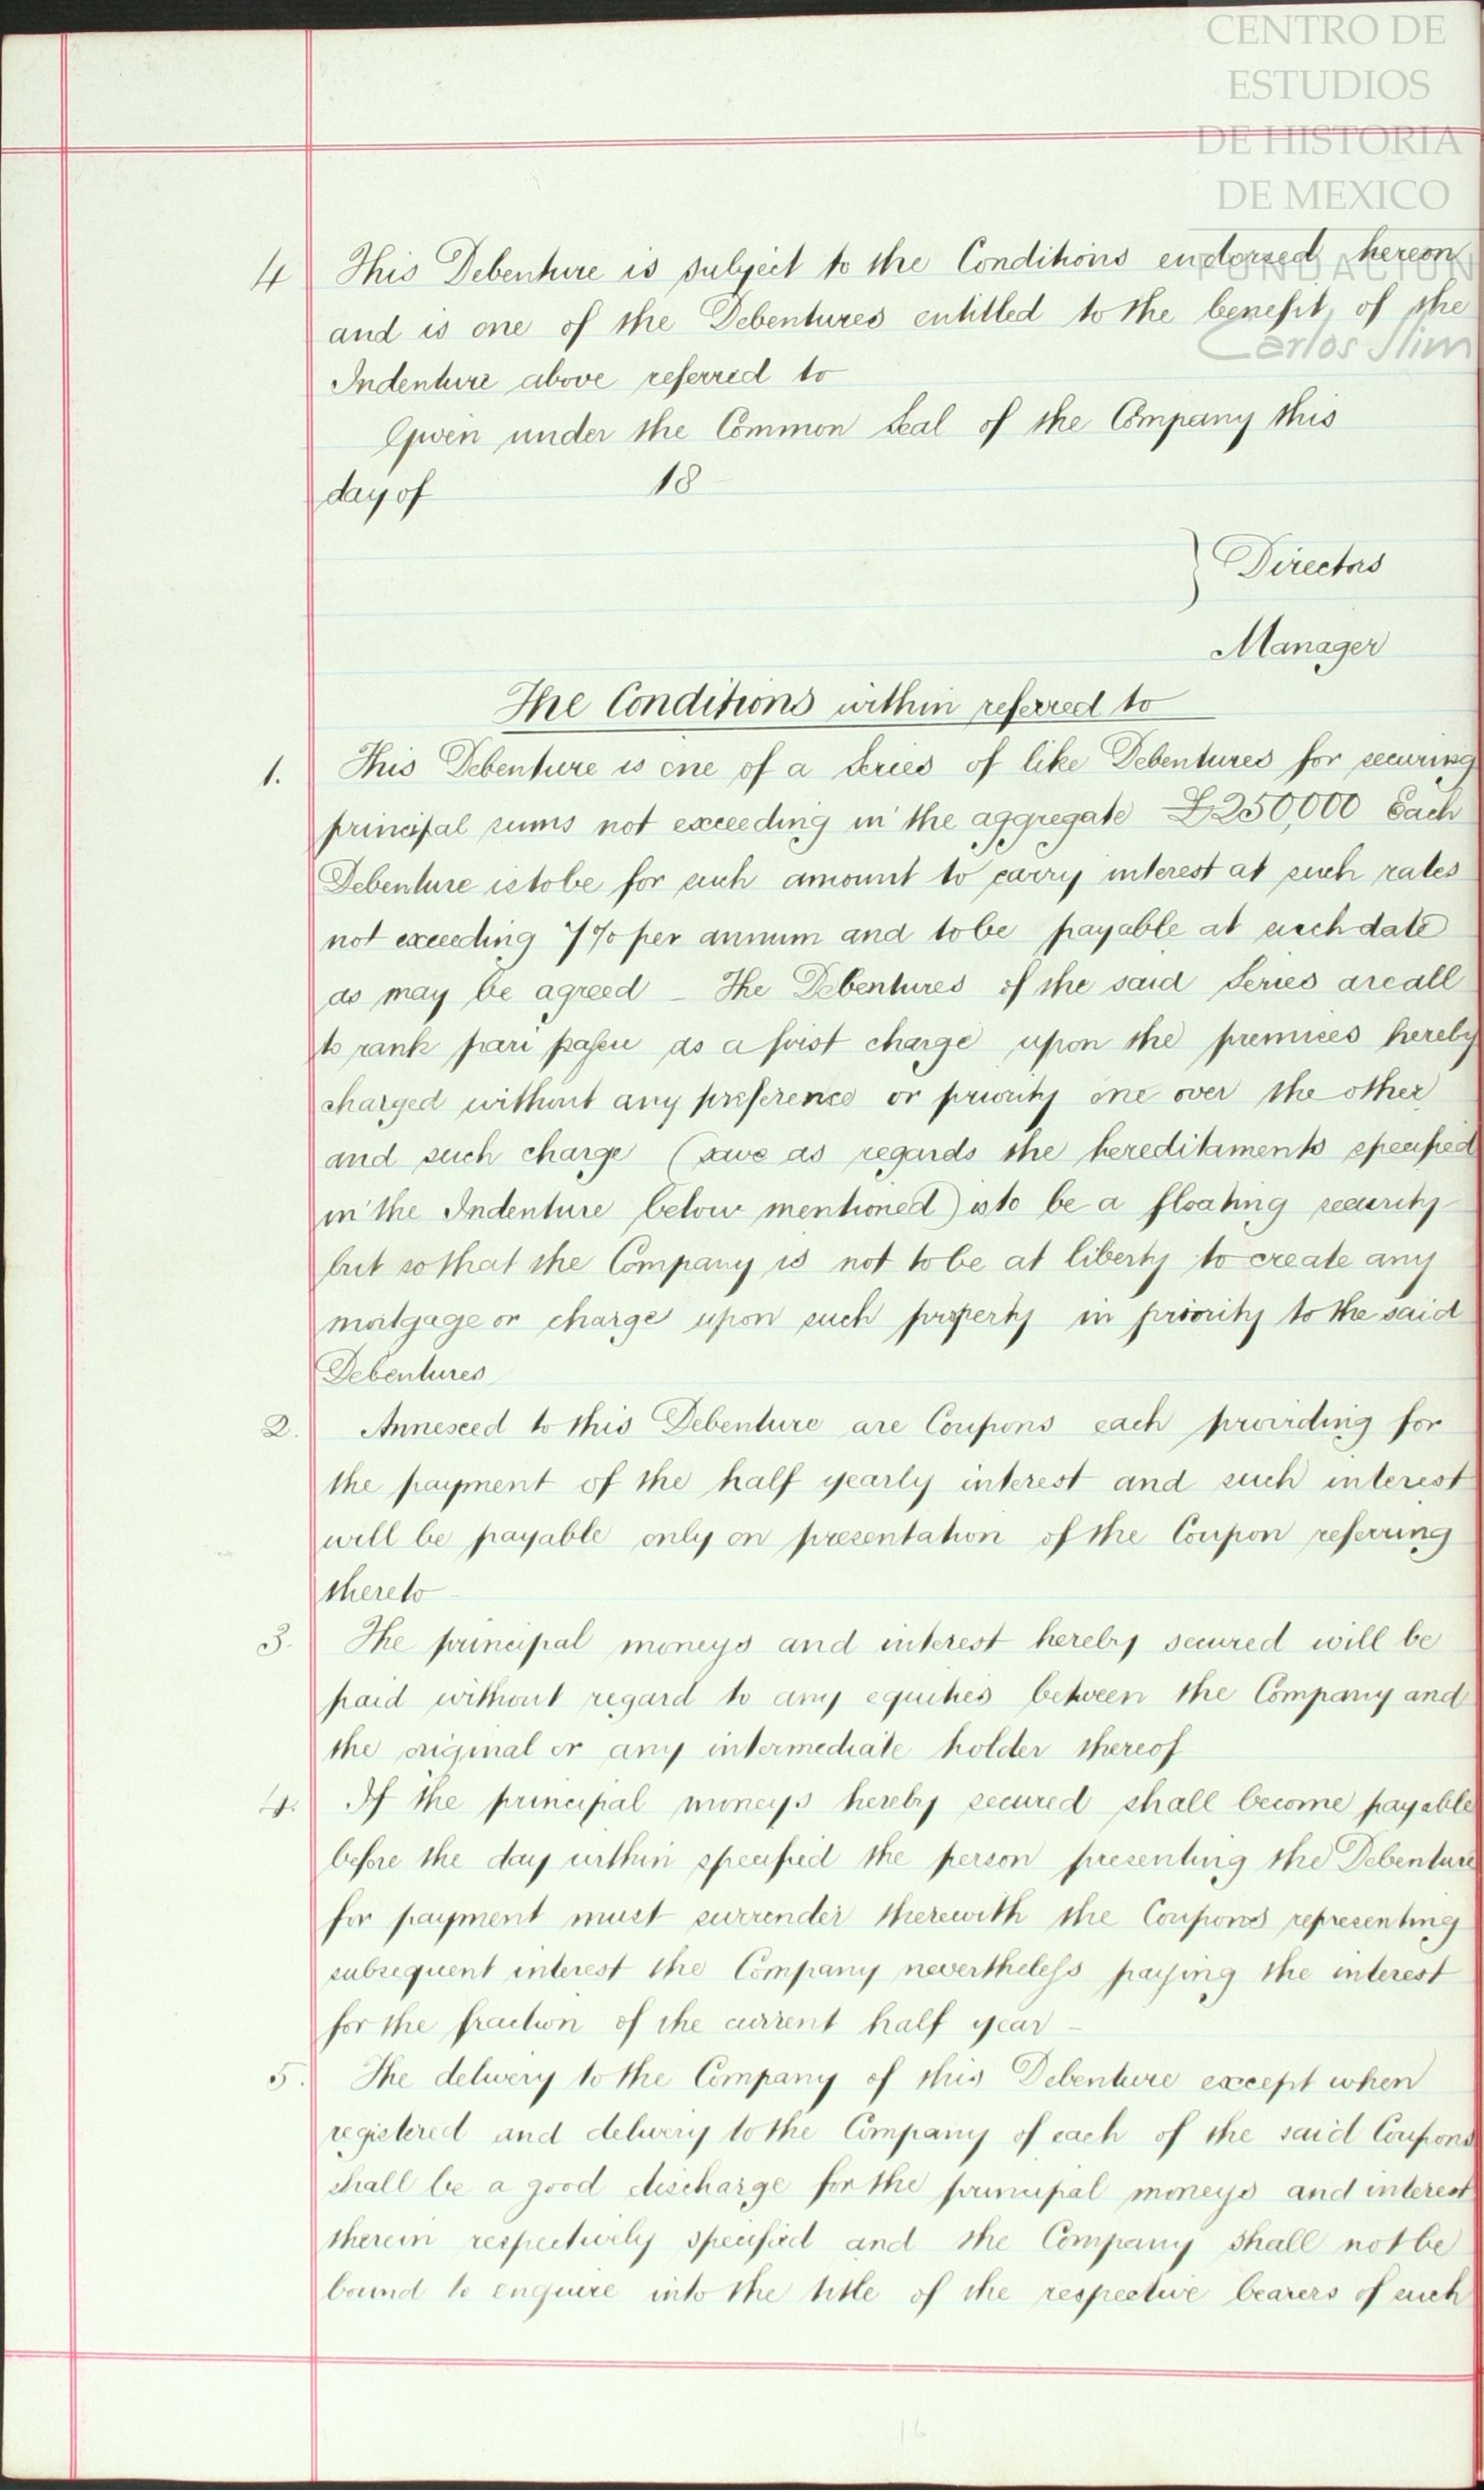 CENTRO DE
ESTUDIOS
DE HISTORIA
DE MEXICO
FUNDACIÓN
Carlos Slim
4 This Debenture is subject to the Conditions endorsed hereon
and is one of the Debentures entitled to the benefit of the
Indenture above referred to
Given under the Common Seal of the Company this
day of 18
} Directors
Manager
The Conditions within referred to
1. This Debenture is one of a Series of like Debentures for securing
principal sums not exceeding in the aggregate £250,000 Each
Debenture is to be for such amount to carry interest at such rates
not exceeding 7% per annum and to be payable at such date
as may be agreed _ The Debentures of the said Series are all
to rank pari passu as a first charge upon the premises hereby
charged without any preference or priority one over the other
and such charge (save as regards the hereditaments specified
in the Indenture below mentioned) is to be a floating security
but so that the Company is not to be at liberty to create any
mortgage or charge upon such property in priority to the said
Debentures
2. Annexed to this Debenture are Coupons each providing for
the payment of the half yearly interest and such interest
will be payable only on presentation of the Coupon referring
thereto
3. The principal moneys and interest hereby secured will be
paid without regard to any equities between the Company and
the original or any intermediate holder thereof
4. If the principal moneys hereby secured shall become payable
before the day within specified the person presenting the Debenture
for payment must surrender therewith the Coupons representing
subsequent interest the Company nevertheless paying the interest
for the fraction of the current half year _
5. The delivery to the Company of this Debenture except when
registered and delivery to the Company of each of the said Coupons
shall be a good discharge for the principal moneys and interest
therein respectively specified and the Company shall not be
bound to enquire into the title of the respective bearers of such
16